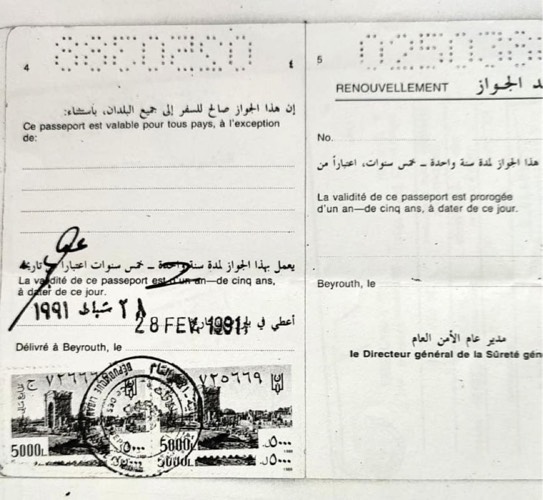 4
٤
إن هذا الجواز صالح للسفر إلى جميع البلدان، باستثناء:
Ce passeport est valable pour tous pays, à l'exception
de:
يعمل بهذا الجواز لمدة سنة واحدة ــ خمس سنوات اعتباراً تاريخه
La validité de ce passeport est d'un an—de cinq ans,
à dater de ce jour.
٢٨ شباط ١٩٩١
أعطي في
28 FEV. 1991
Délivré à Beyrouth, le
٧٢٥٦٦٩
5000L
٥٠٠٠
5000L
٥٠٠٠ ل.
5
RENOUVELLEMENT
د الجواز
No.
هذا الجواز لمدة سنة واحدة ــ خمس سنوات، اعتباراً من
La validité de ce passeport est prorogée
d'un an—de cinq ans, à dater de ce jour.
Beyrouth, le
مدير عام الأمن العام
le Directeur général de la Sûreté gén